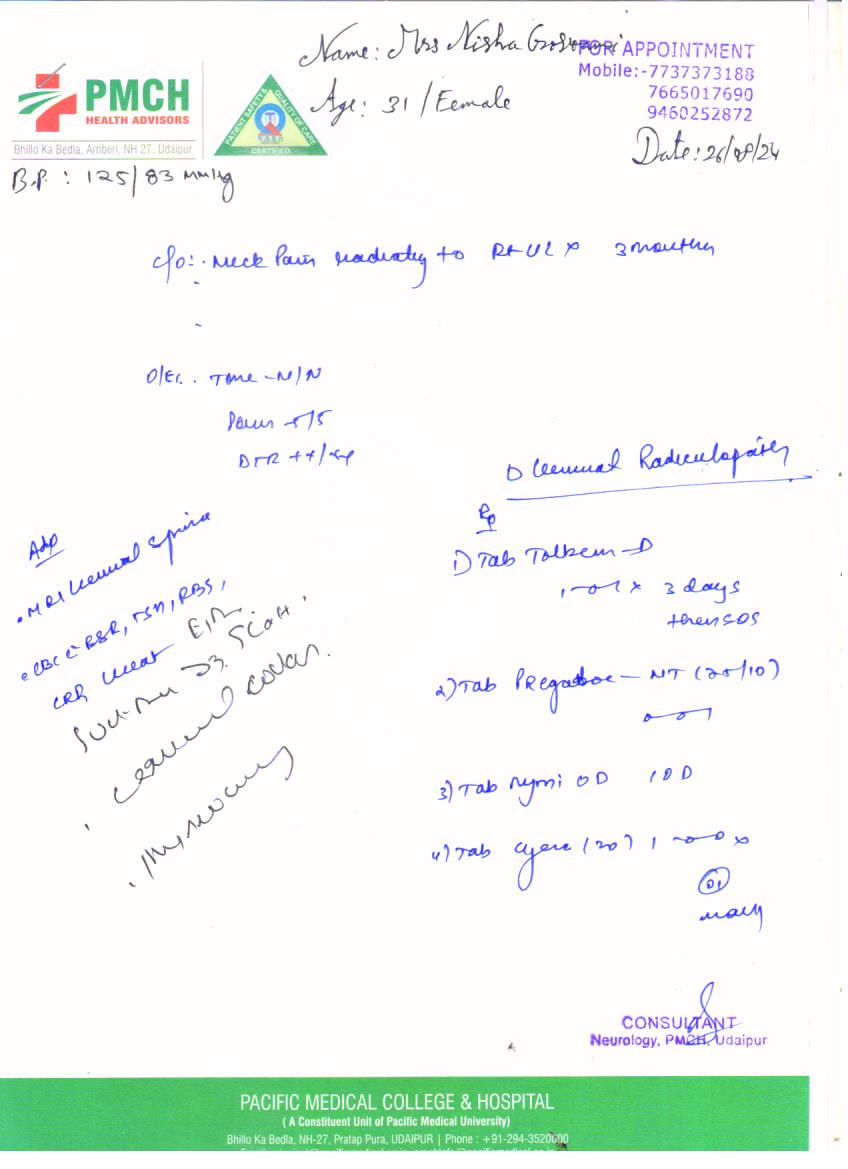 Name: Mrs Nisha Goswami
FOR APPOINTMENT
Mobile:-7737373188
7665017690
9460252872
PMCH
HEALTH ADVISORS
Bhillo Ka Bedla, Amberi, NH 27, Udaipur
PATIENT SAFETY & QUALITY OF CARE
CERTIFIED
Age: 31 / Female
Date: 26/08/24
B.P. : 125/83 mmHg
c/o: Neck Pain radiating to Rt UL x 3 months
O/E. Tone - N/N
Power 5/5
DTR ++/++
Cervical Radiculopathy
Adv
MRI Cervical Spine
CBC ESR, TSH, RBS,
CRP
Cervical collar.
Physio
Rp
1) Tab - D
1-0-1 x 3 days
then SOS
2) Tab Pregaboe - NT (25/10)
0-0-1
3) Tab OD 1 OD
4) Tab (20) 1-0-0 x
01
CONSULTANT
Neurology, PMCH, Udaipur
PACIFIC MEDICAL COLLEGE & HOSPITAL
( A Constituent Unit of Pacific Medical University)
Bhillo Ka Bedla, NH-27, Pratap Pura, UDAIPUR | Phone : +91-294-3520000